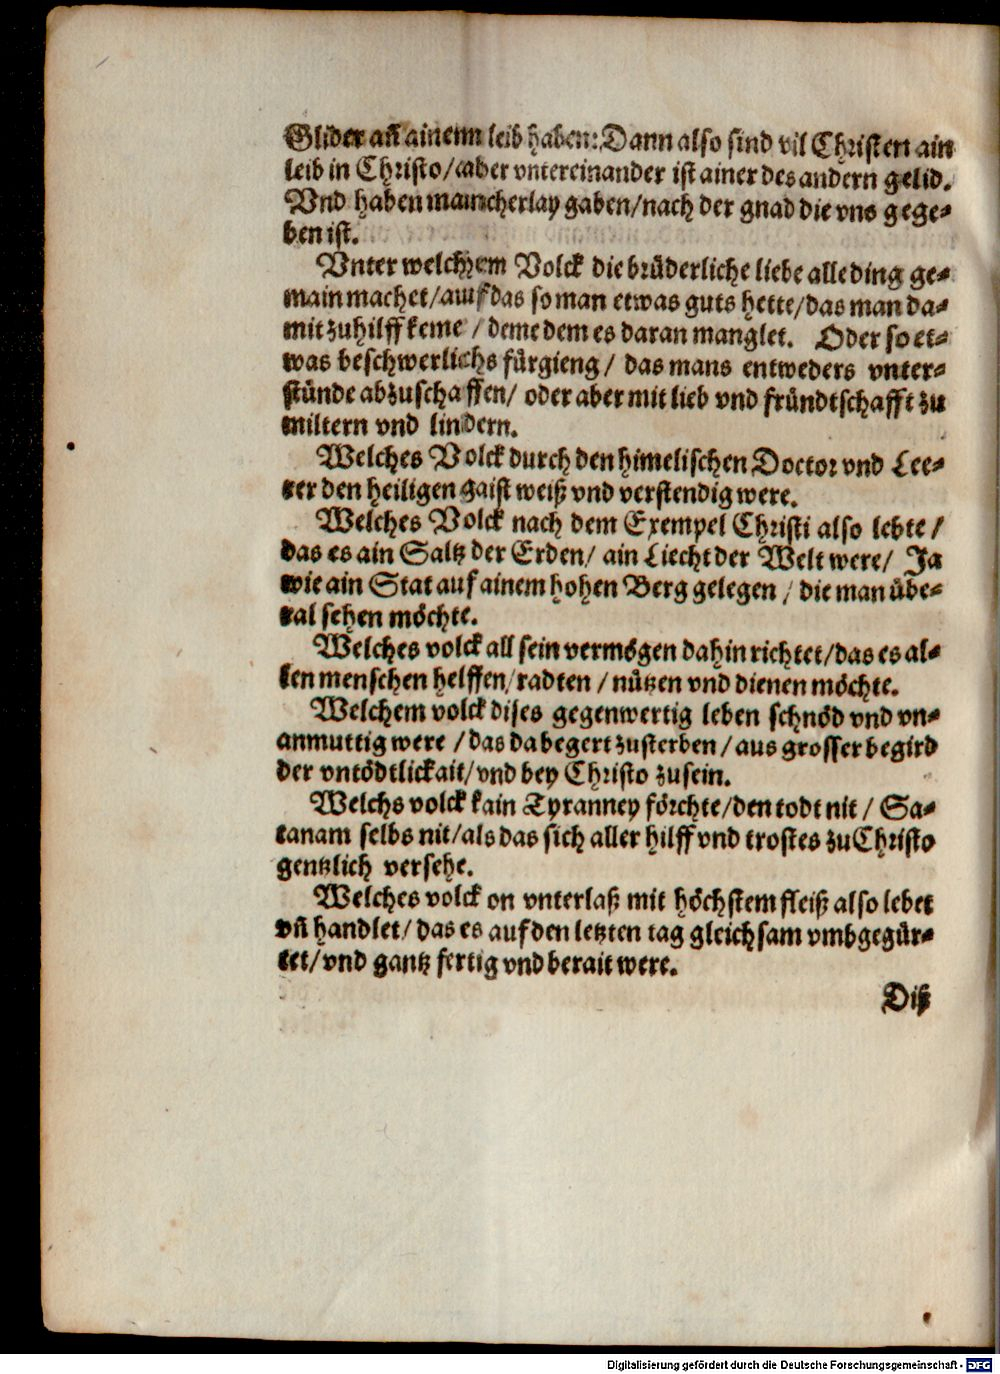 Glider an̄ ainem leib haben: Dann also sind vil Christen ain
leib in Christo/ aber vntereinander ist ainer des andern gelid.
Vnd haben mancherlay gaben/ nach der gnad die vns gege-
ben ist.
Vnter welchem Volck die brüderliche liebe alle ding ge-
main machet/ auf das so man etwas guts hette/ das man da-
mit zuhilff keme / deme dem es daran manglet. Oder so et-
was beschwerlichs fürgieng/ das mans entweders vnter-
stünde abzuschaffen/ oder aber mit lieb vnd fründtschafft zu
miltern vnd lindern.
Welches Volck durch den himelischen Doctor vnd Lee-
rer den heiligen gaist weiß vnd verstendig were.
Welches Volck nach dem Exempel Christi also lebte/
das es ain Saltz der Erden/ ain Liecht der Welt were/ Ja
wie ain Stat auf ainem hohen Berg gelegen / die man übe-
ral sehen möchte.
Welches volck all sein vermögen dahin richtet/ das es al-
len menschen helffen/ radten / nützen vnd dienen möchte.
Welchem volck dises gegenwertig leben schnöd vnd vn-
anmuttig were / das da begert zusterben/ aus grosser begird
der vntödtlickait/ vnd bey Christo zusein.
Welchs volck kain Tyranney förchte/ den todt nit/ Sa-
tanam selbs nit/ als das sich aller hilff vnd trostes zu Christo
gentzlich versehe.
Welches volck on vnterlaß mit höchstem fleiß also lebet
vn̄ handlet/ das es auf den letzten tag gleichsam vmbgegür-
tet/ vnd gantz fertig vnd berait were.
Diß
Digitalisierung gefördert durch die Deutsche Forschungsgemeinschaft - DFG